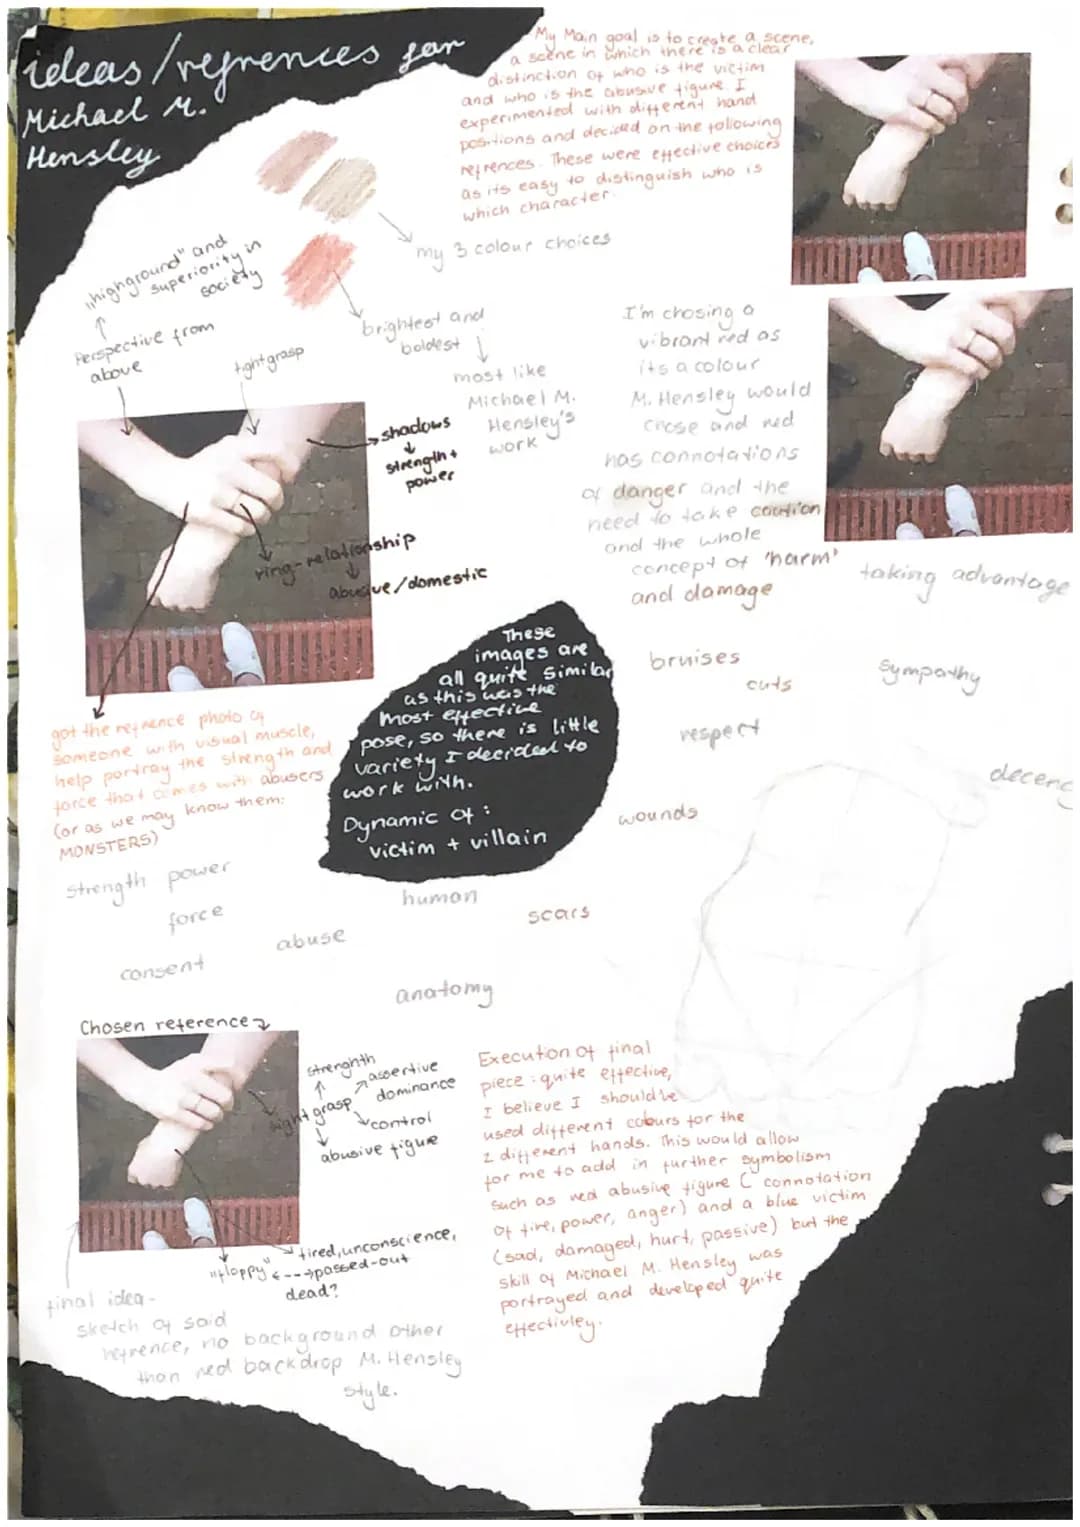 ideas/refrences for
Michael M.
Hensley
My Main goal is to create a scene,
a scene in which there is a clear
distinction of who is the victim
and who is the abusive figure. I
experimented with different hand
positions and decided on the following
refrences. These were effective choices
as its easy to distinguish who is
which character.
my 3 colour choices
"highground" and
superiority in
society
Perspective from
above
tight grasp
brightest and
boldest
most like
Michael M.
Hensley's
work
I'm chosing a
vibrant red as
its a colour
M. Hensley would
chose and red
has connotations
of danger and the
need to take caution
and the whole
concept of 'harm'
and damage
shadows
strength +
power
ring-relationship
abusive/domestic
taking advantage
These
images are
all quite similar
as this was the
most effective
pose, so there is little
variety I decided to
work with.
Dynamic of:
victim + villain
bruises
cuts
sympathy
respect
decenc
wounds
got the refrence photo of
someone with visual muscle,
help portray the strength and
force that comes with abusers
(or as we may know them:
MONSTERS)
strength power
force
consent
abuse
human
scars
anatomy
Chosen reference
strenghth
assertive
dominance
tight grasp
control
abusive figure
"floppy"
tired, unconscience,
passed-out
dead?
final idea-
sketch of said
refrence, no background other
than red backdrop M. Hensley
style.
Execution of final
piece: quite effective,
I believe I should've
used different colours for the
2 different hands. This would allow
for me to add in further symbolism
such as red abusive figure (connotation
of fire, power, anger) and a blue victim
(sad, damaged, hurt, passive) but the
skill of Michael M. Hensley was
portrayed and developed quite
effectivley.